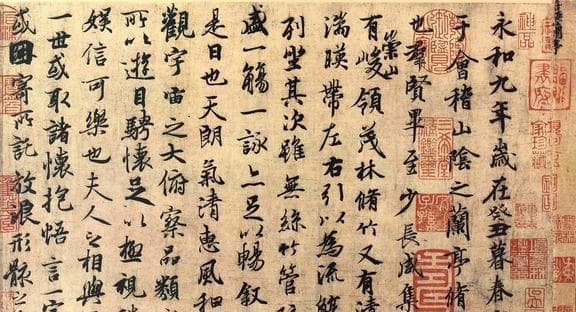 永和九年歲在癸丑暮春
于會稽山陰之蘭亭脩
也群賢畢至少長咸集
有崇山峻領茂林脩竹又有清
湍暎帶左右引以為流
列坐其次雖無絲竹管
盛一觴一詠亦足以暢敘
是日也天朗氣清惠風和
觀宇宙之大俯察品類
所以遊目騁懷足以極視
娛信可樂也夫人之相與
一世或取諸懷抱悟言一
或因寄所託放浪形骸之